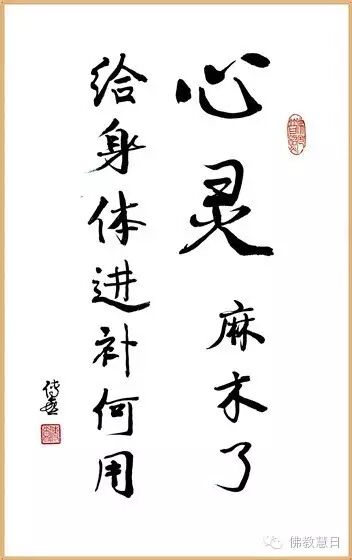 心灵麻木了
给身体进补何用
佛教慧日